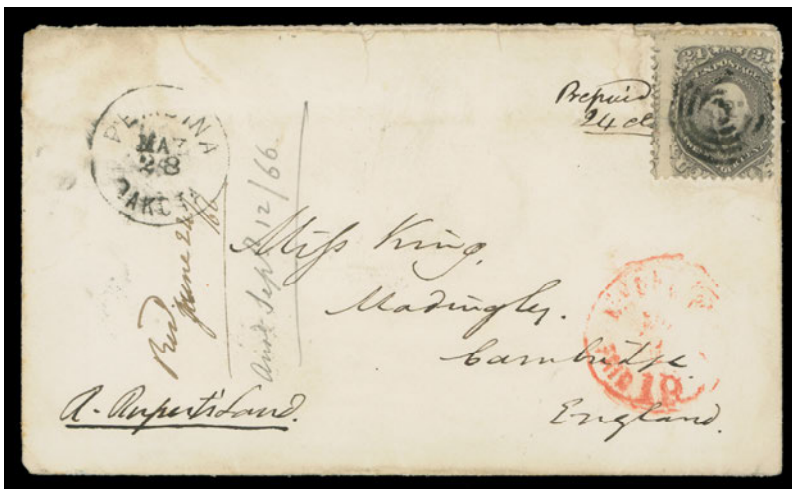 Prepaid
24 cts
24 24
U.S. POSTAGE
PEMBINA
MAY
28
DAKOTA
Recd June 24/66
Ansd Septr 12/66
Miss King,
Madingley.
Cambridge.
England.
PAID 19
A. Ruperts Land.